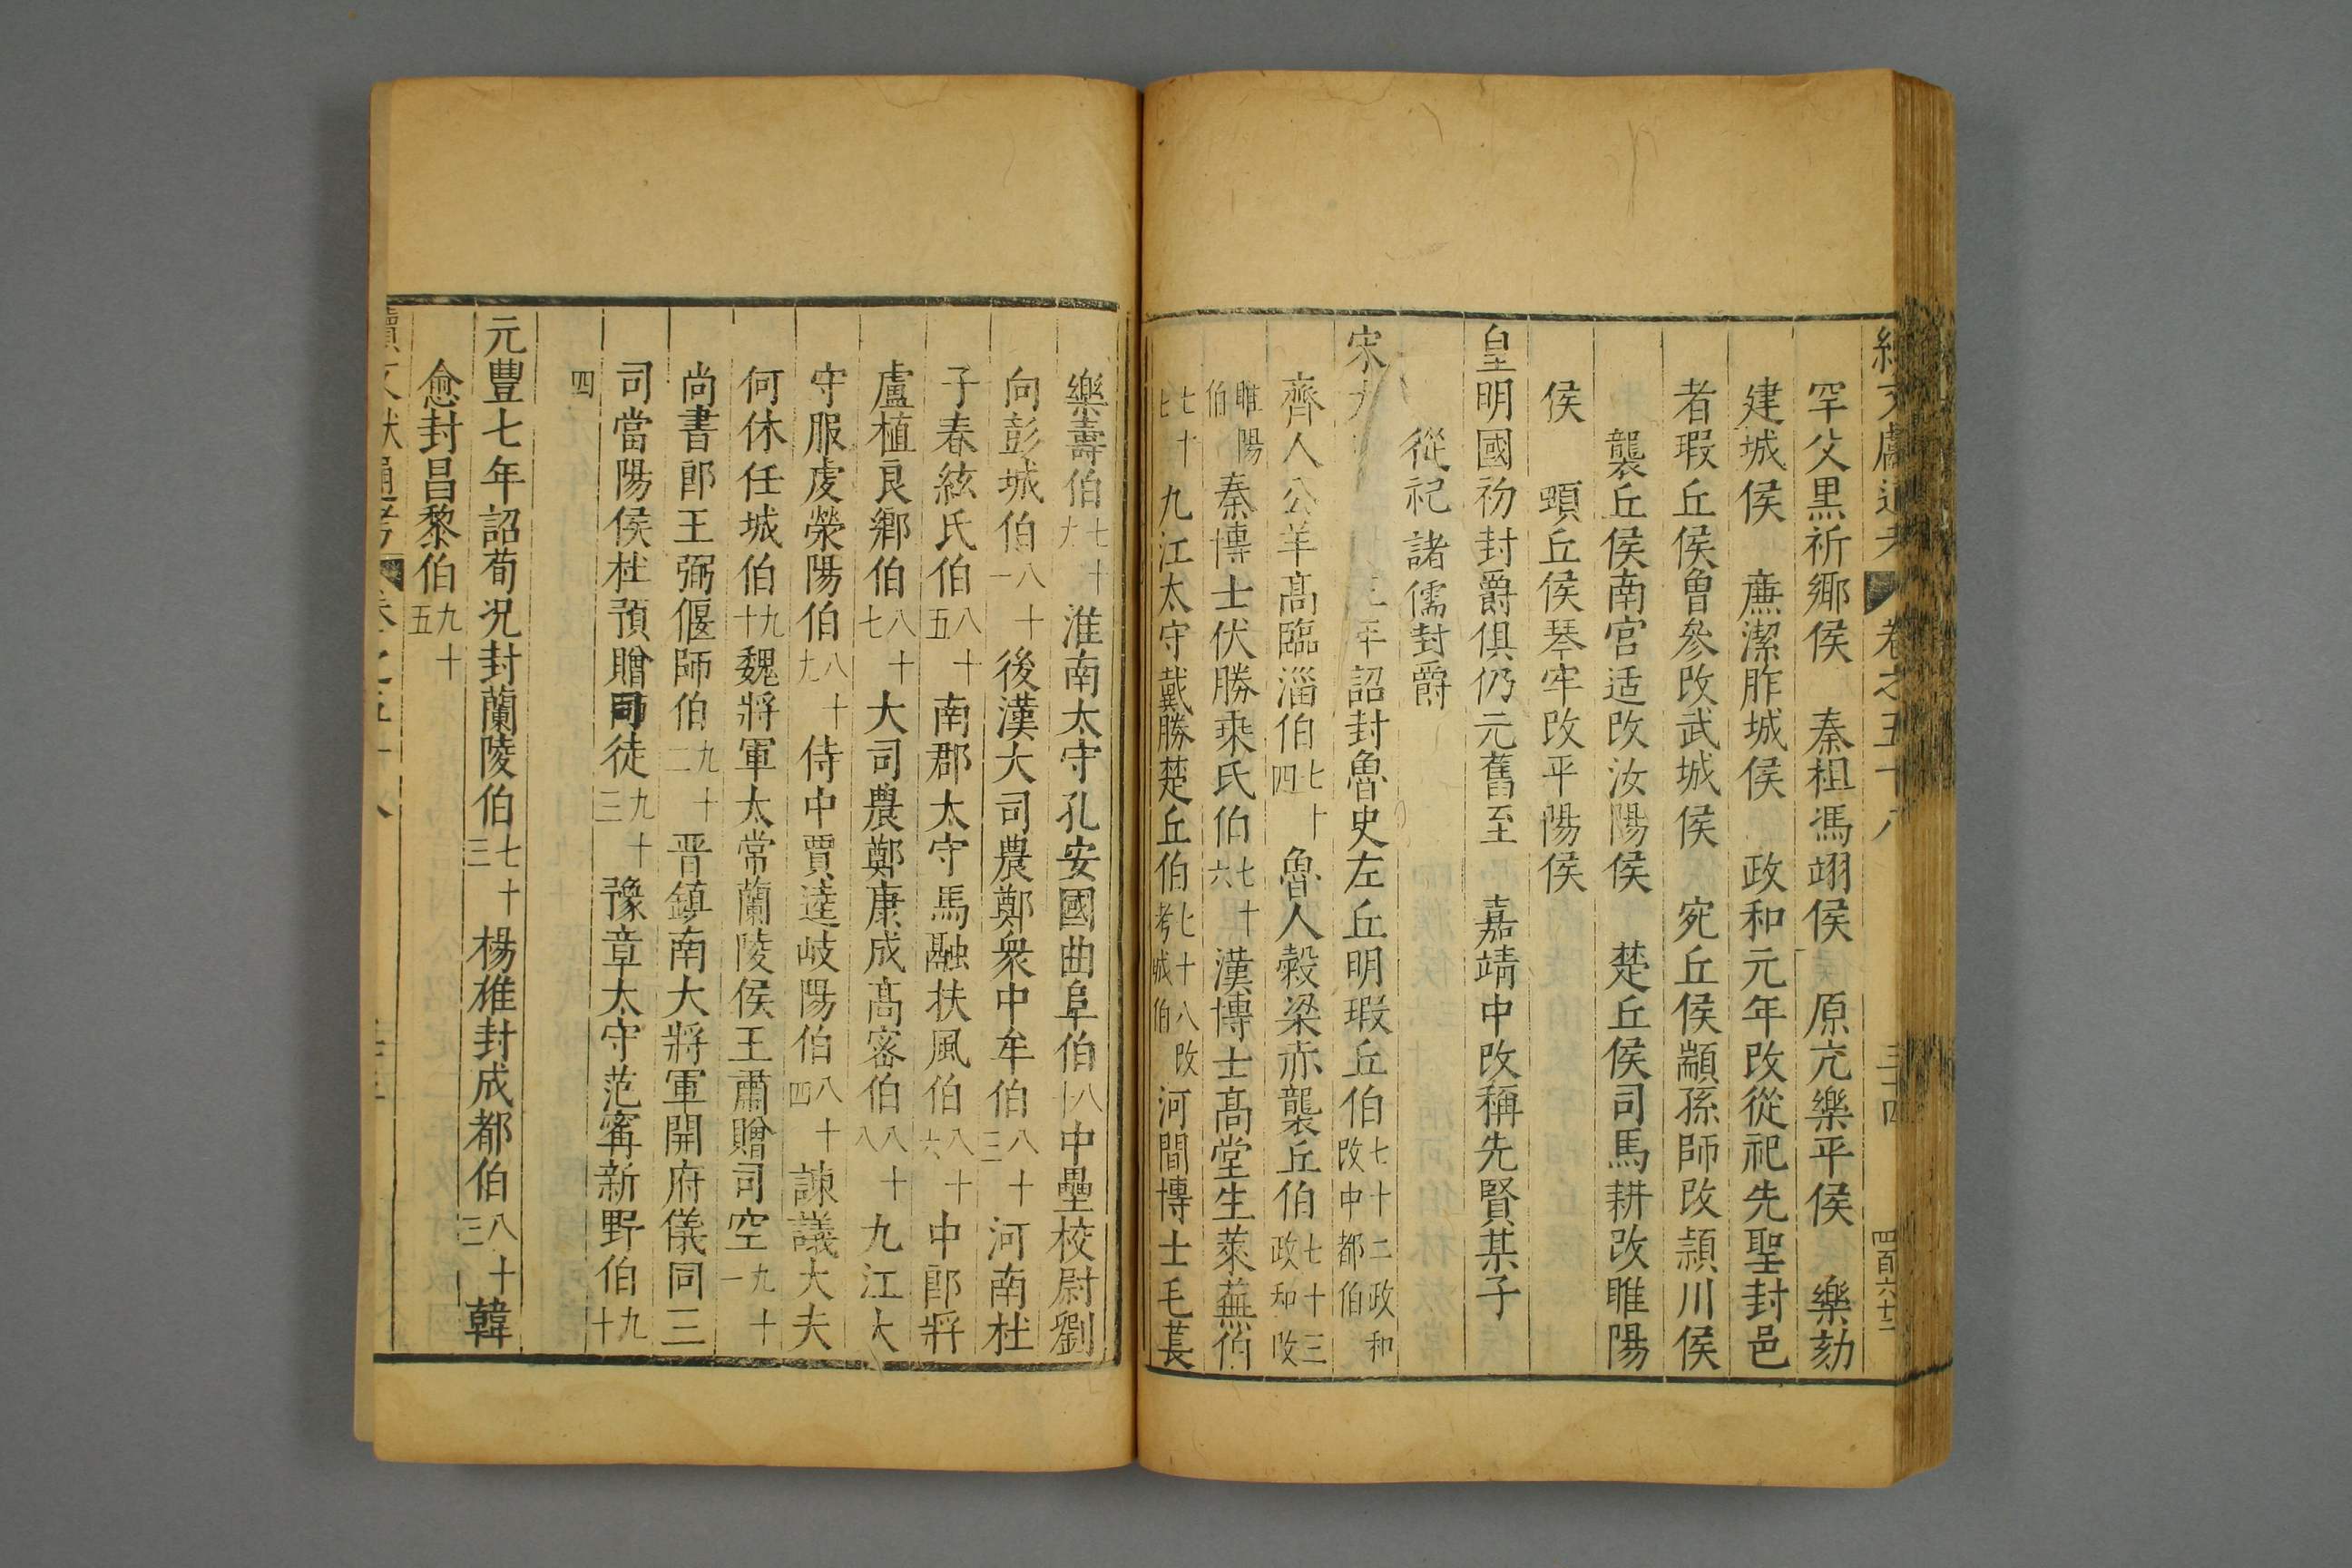 卷之五十八
四百六十三
罕父黑祈鄉侯 秦祖馮翊侯 原亢樂平侯 樂欬
建城侯 廉潔胙城侯 政和元年改從祀先聖封邑
者瑕丘侯曾參改武城侯 宛丘侯顓孫師改潁川侯
襲丘侯南宮适改汝陽侯 楚丘侯司馬耕改睢陽
侯 頓丘侯琴牢改平陽侯
皇明國初封爵俱仍元舊至 嘉靖中改稱先賢某子
從祀諸儒封爵
宋 年詔封魯史左丘明瑕丘伯七十二政和改中都伯
齊人公羊高臨淄伯七十四 魯人穀梁赤襲丘伯七十三政和改
睢陽伯 秦博士伏勝乘氏伯七十六 漢博士高堂生萊蕪伯
七十七 九江太守戴勝楚丘伯七十八改考城伯 河間博士毛萇
樂壽伯七十九 淮南太守孔安國曲阜伯八十 中壘校尉劉
向彭城伯八十一 後漢大司農鄭衆中牟伯八十三 河南杜
子春緱氏伯八十五 南郡太守馬融扶風伯八十六 中郎將
盧植良鄉伯八十七 大司農鄭康成高密伯八十八 九江太
守服虔滎陽伯八十九 侍中賈逵岐陽伯八十四 諫議大夫
何休任城伯九十 魏將軍太常蘭陵侯王肅贈司空九十一
尚書郎王弼偃師伯九十二 晋鎮南大將軍開府儀同三
司當陽侯杜預贈司徒九十三 豫章太守范甯新野伯九十
四
元豐七年詔荀況封蘭陵伯七十三 楊雄封成都伯八十三 韓
愈封昌黎伯九十五